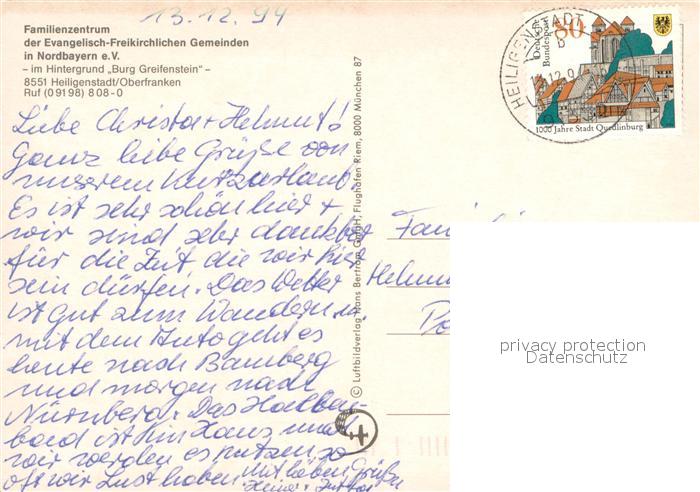 13.12.94
Familienzentrum
der Evangelisch-Freikirchlichen Gemeinden
in Nordbayern e.V.
– im Hintergrund „Burg Greifenstein“ –
8551 Heiligenstadt/Oberfranken
Ruf (0 91 98) 8 08-0
Liebe Christa + Helmut!
Ganz liebe Grüße von
unserem Kurzurlaub.
Es ist sehr schön hier +
wir sind sehr dankbar
für die Zeit die wir hier
sein dürfen. Das Wetter
ist gut zum Wandern u.
mit dem Auto geht es
heute nach Bamberg
und morgen nach
Nürnberg. Das Hallen-
bad ist im Haus und
wir werden es nutzen so
oft wir Lust haben. Mit lieben Grüßen
Heiner +
© Luftbildverlag Hans Bertram GmbH, Flughafen Riem, 8000 München 87
HEILIGENSTADT
b
Deutsche
Bundespost
80
1000 Jahre Stadt Quedlinburg
Fami
Helmu
privacy protection
Datenschutz